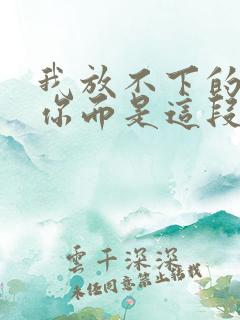 我放不下的
你而是這段
雲千深深
未任同意禁止搭載